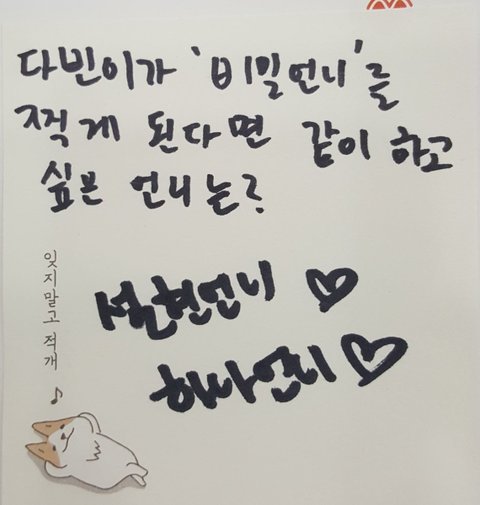 다빈이가 '비밀언니'를
찍게 된다면 같이 하고
싶은 언니는?
설현언니 ♡
하나언니 ♡
잊지말고 적개 ♪